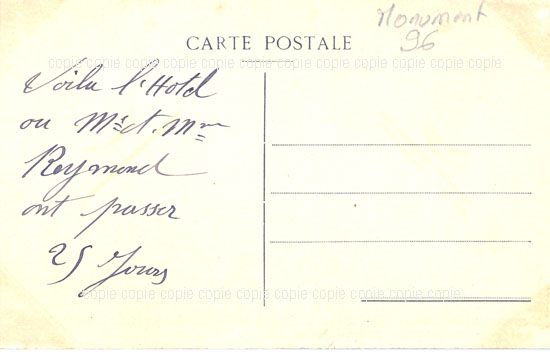 Monument
96
CARTE POSTALE
copie copie copie copie copie copie copie copie copie copie copie copie
Voila l'Hotel
ou Mr et Mme
Reymond
ont passer
25 Jours
copie copie copie copie copie copie copie copie copie copie